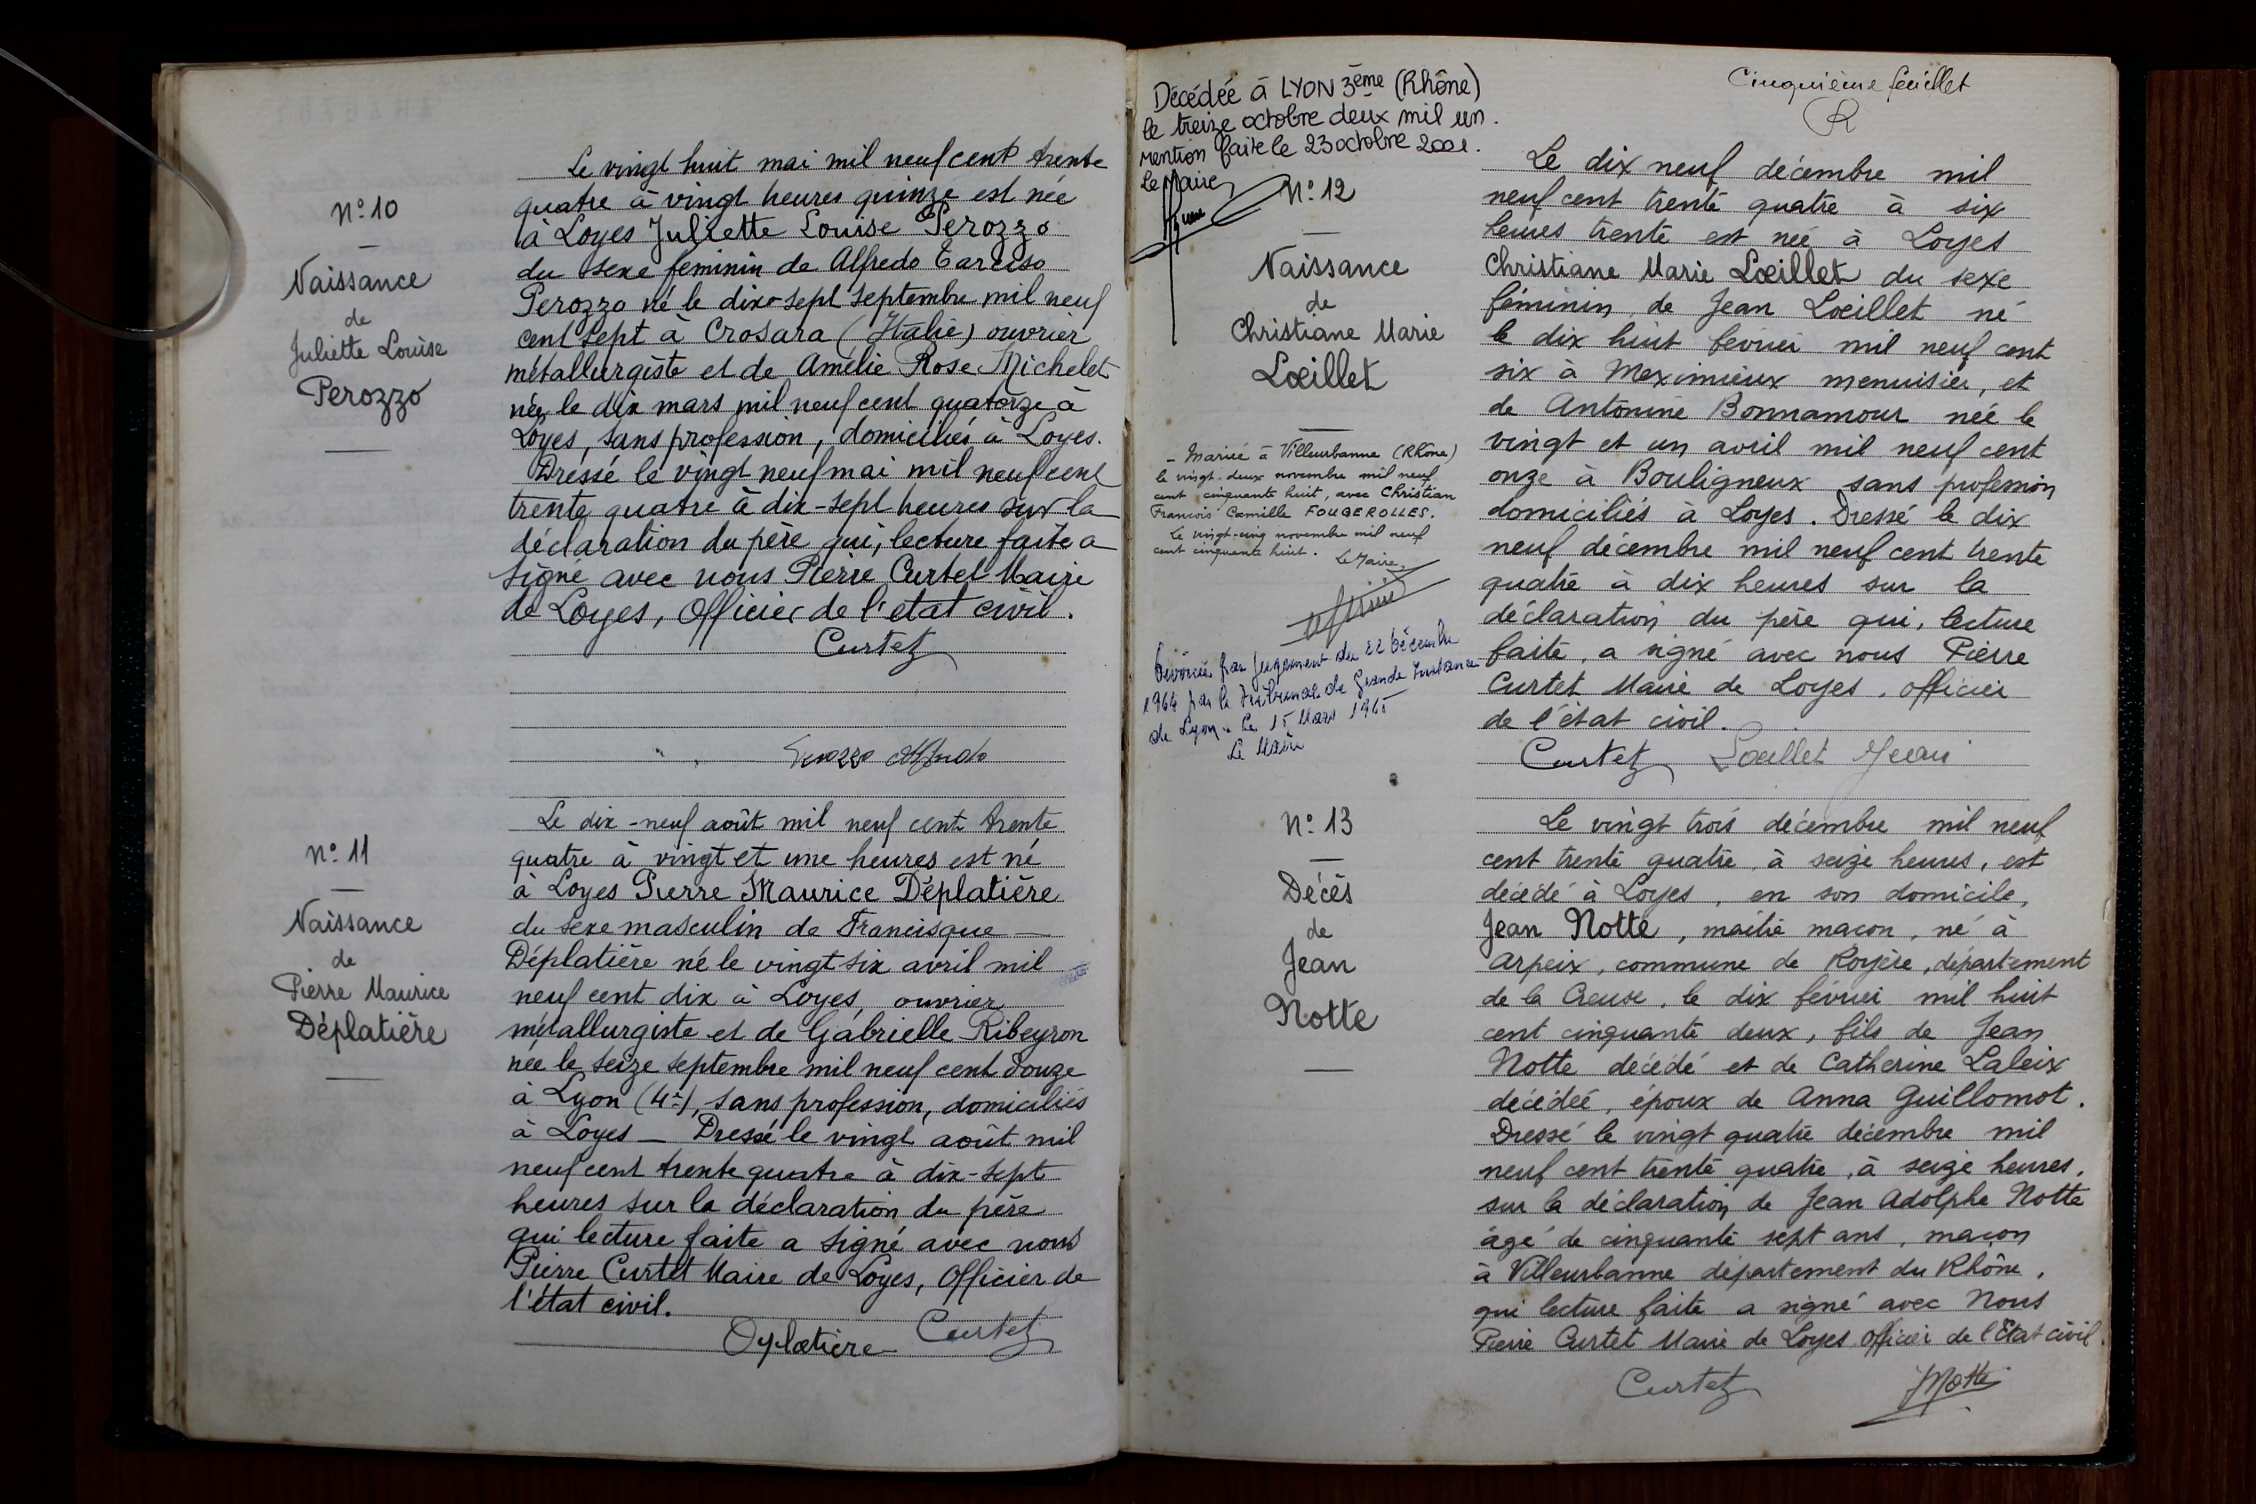 N° 10
Naissance
de
Juliette Louise
Perozzo
Le vingt huit mai mil neuf cent trente
quatre à vingt heures quinze est née
à Loyes Juliette Louise Perozzo
du sexe féminin de Alfredo Tarciso
Perozzo né le dix-sept septembre mil neuf
cent sept à Crosara (Italie) ouvrier
métallurgiste et de Amélie Rose Michelet
née le dix mars mil neuf cent quatorze à
Loyes, sans profession, domiciliés à Loyes.
Dressé le vingt neuf mai mil neuf cent
trente quatre à dix-sept heures sur la
déclaration du père qui, lecture faite a
signé avec nous Pierre Curtet Maire
de Loyes, Officier de l'état civil.
Curtet
Perozzo Alfredo
N° 11
Naissance
de
Pierre Maurice
Déplatière
Le dix-neuf août mil neuf cent trente
quatre à vingt et une heures est né
à Loyes Pierre Maurice Déplatière
du sexe masculin de Francisque
Déplatière né le vingt six avril mil
neuf cent dix à Loyes, ouvrier
métallurgiste et de Gabrielle Ribeyron
née le seize septembre mil neuf cent douze
à Lyon (4e), sans profession, domiciliés
à Loyes - Dressé le vingt août mil
neuf cent trente quatre à dix-sept
heures sur la déclaration du père
qui lecture faite a signé avec nous
Pierre Curtet Maire de Loyes, Officier de
l'état civil.
Déplatière Curtet
Cinquième feuillet
Décédée à LYON 3ème (Rhône)
le treize octobre deux mil un.
mention faite le 23 octobre 2001.
Le Maire
N° 12
Naissance
de
Christiane Marie
Lœillet
- Mariée à Villeurbanne (Rhône)
le vingt-deux novembre mil neuf
cent cinquante huit, avec Christian
François Camille FOUGEROLLES.
Le vingt-cinq novembre mil neuf
cent cinquante huit.
Le Maire,
Divorcée par jugement du 22 Décembre
1964 par le Tribunal de Grande Instance
de Lyon - Le 15 Mars 1965
Le Maire
Le dix neuf décembre mil
neuf cent trente quatre à six
heures trente est née à Loyes
Christiane Marie Lœillet du sexe
féminin, de Jean Lœillet né
le dix huit février mil neuf cent
six à Meximieux menuisier, et
de Antonine Bonnamour née le
vingt et un avril mil neuf cent
onze à Bouligneux sans profession
domiciliés à Loyes. Dressé le dix
neuf décembre mil neuf cent trente
quatre à dix heures sur la
déclaration du père qui, lecture
faite, a signé avec nous Pierre
Curtet Maire de Loyes, officier
de l'état civil.
Curtet Lœillet Jean
N° 13
Décès
de
Jean
Notte
Le vingt trois décembre mil neuf
cent trente quatre, à seize heures, est
décédé à Loyes, en son domicile,
Jean Notte, maître maçon, né à
Arpeix, commune de Royère, département
de la Creuse, le dix février mil huit
cent cinquante deux, fils de Jean
Notte décédé et de Catherine Laleix
décédée, époux de Anna Guillomot.
Dressé le vingt quatre décembre mil
neuf cent trente quatre, à seize heures,
sur la déclaration de Jean Adolphe Notte
âgé de cinquante sept ans, maçon
à Villeurbanne département du Rhône,
qui lecture faite a signé avec Nous
Pierre Curtet Maire de Loyes Officier de l'Etat civil.
Curtet JNotte